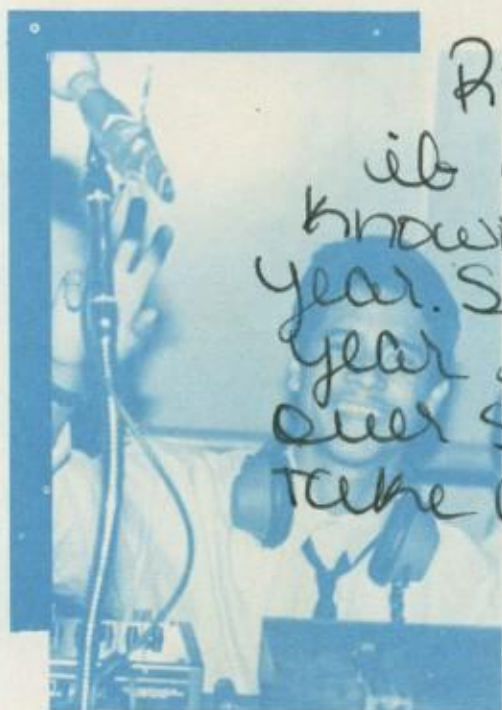 R
it
Know
year. S
year
over S
Take